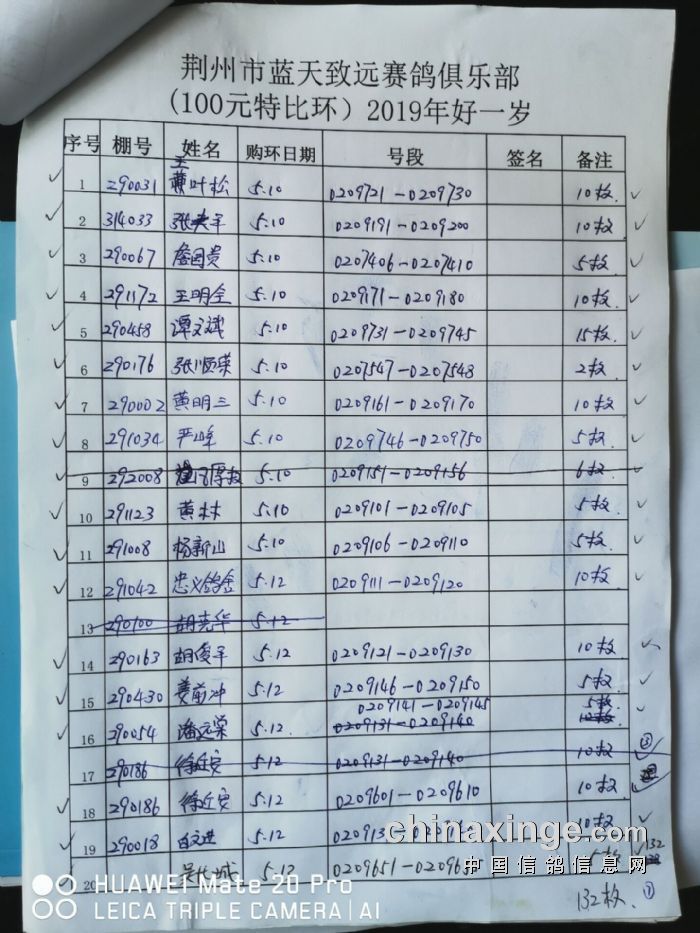 荆州市蓝天致远赛鸽俱乐部
(100元特比环）2019年好一岁
序号 棚号 姓名 购环日期 号段 签名 备注
1 290031 王叶松 5.10 0209721-0209730 10枚
2 314033 张夫军 5.10 0209191-0209200 10枚
3 290067 詹国贵 5.10 0207406-0207410 5枚
4 291172 王明全 5.10 0209171-0209180 10枚
5 290458 谭文斌 5.10 0209731-0209745 15枚
6 290176 张顺荣 5.10 0207547-0207548 2枚
7 290002 黄明三 5.10 0209161-0209170 10枚
8 291034 严峰 5.10 0209746-0209750 5枚
9 292008 5.10 0209151-0209156 6枚
10 291123 黄林 5.10 0209101-0209105 5枚
11 291008 杨新山 5.10 0209106-0209110 5枚
12 291042 忠义鸽舍 5.12 0209111-0209120 10枚
13 290100 胡克华 5.12
14 290163 胡俊军 5.12 0209121-0209130 10枚
15 290430 姜前冲 5.12 0209146-0209150 5枚
0209141-0209145 5枚
16 290054 潘远荣 5.12 0209131-0209140 10枚
17 290186 徐近安 5.12 0209131-0209140 10枚 ②
18 290186 徐近安 5.12 0209601-0209610 10枚
19 290018 5.12 10枚
20 5.12 0209651- 5枚 132
132枚 ①
chinaxinge.com
中国信鸽信息网
HUAWEI Mate 20 Pro
LEICA TRIPLE CAMERA | AI